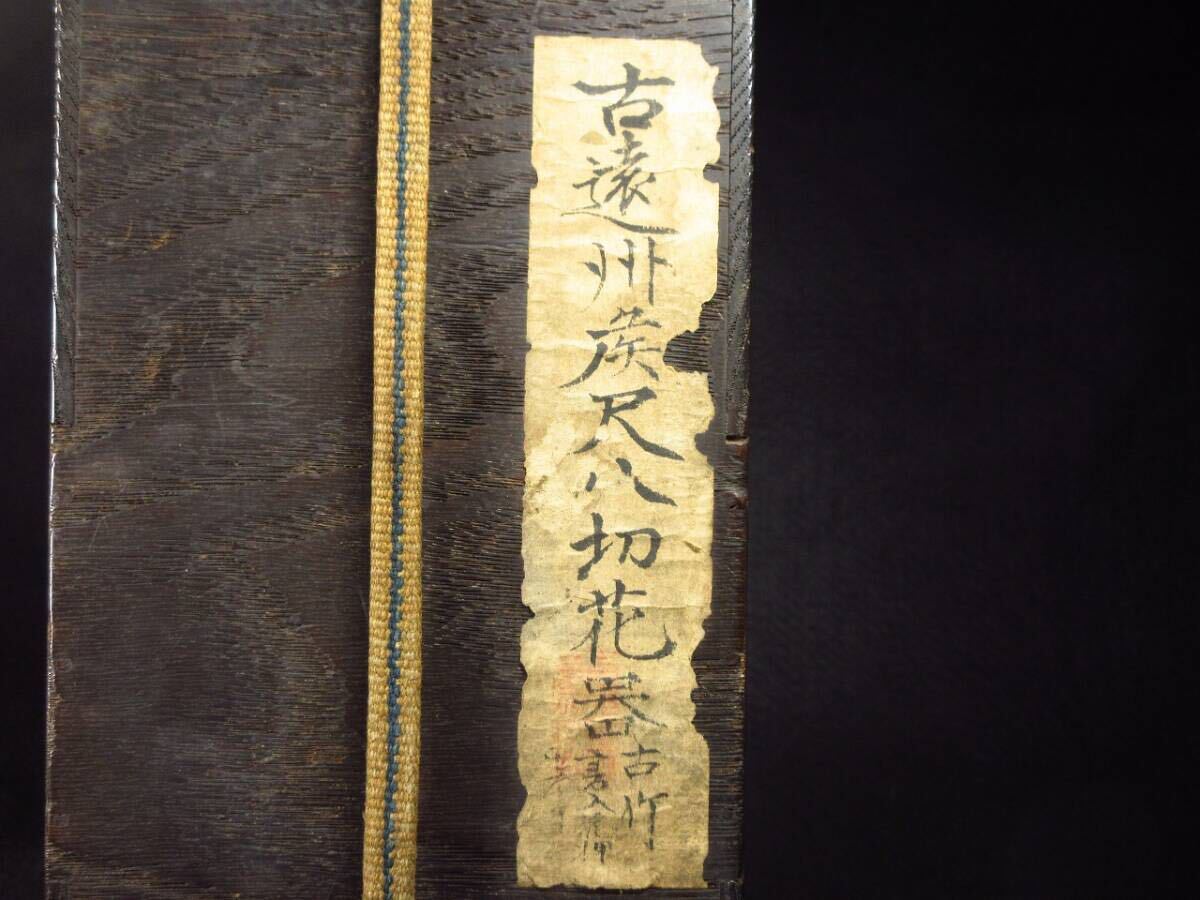 古遠州侯尺八切花器
古竹